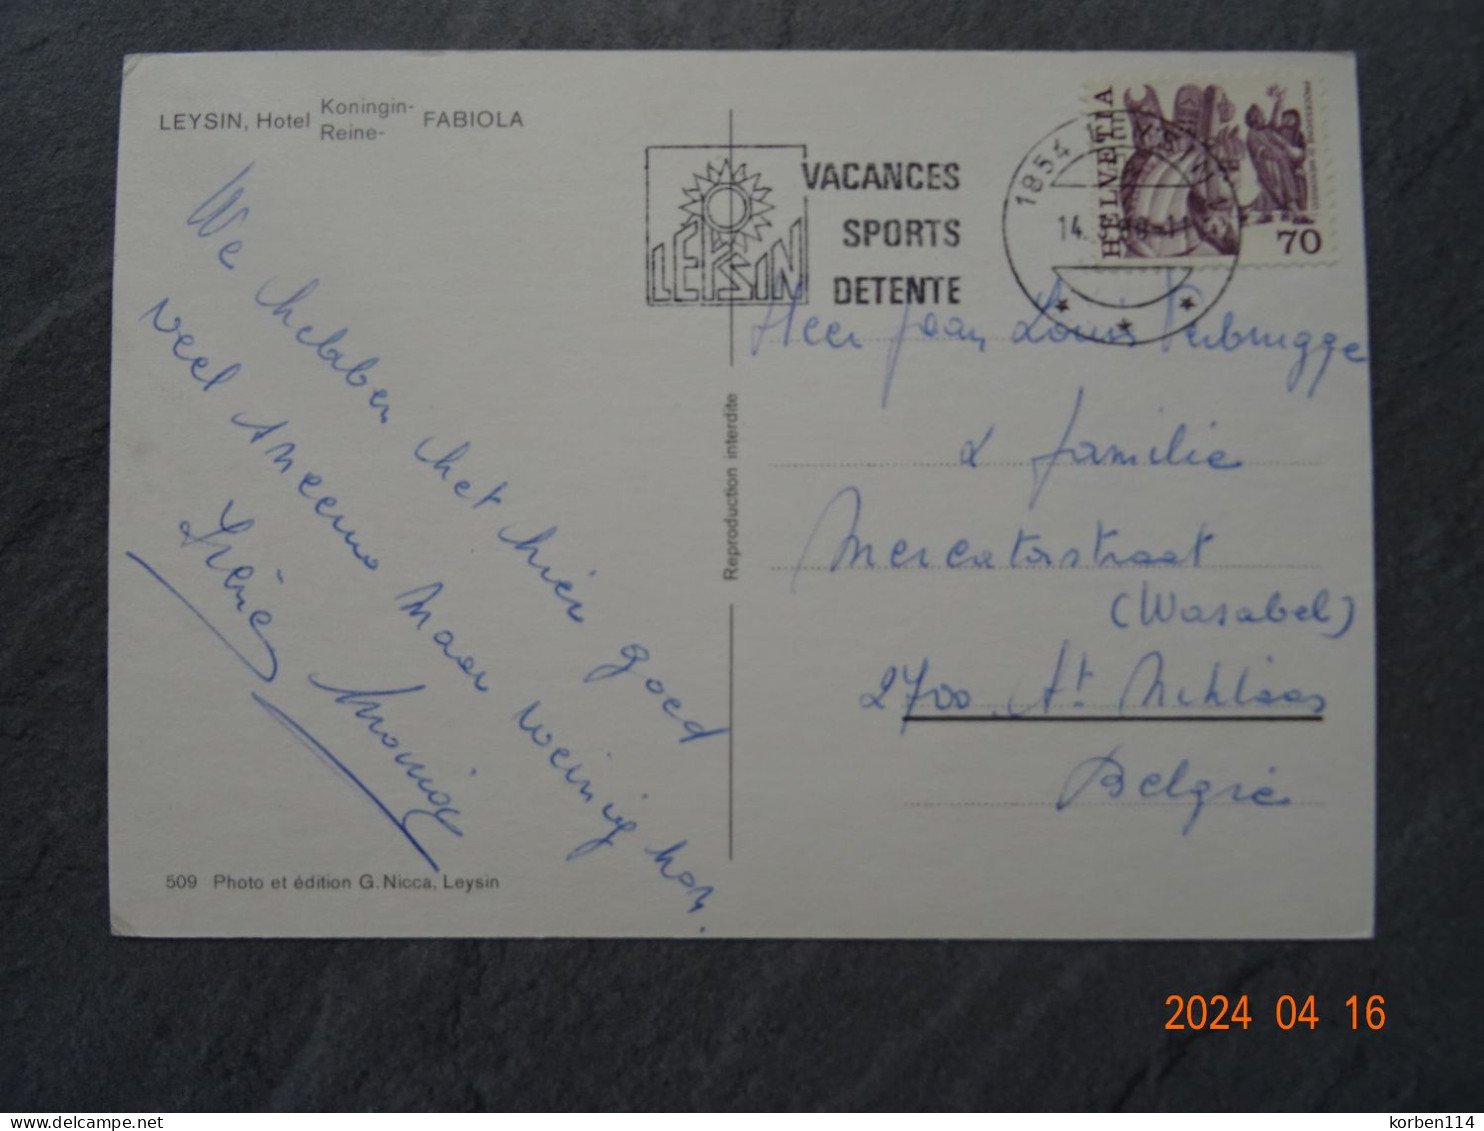 LEYSIN, Hotel Koningin- Reine- FABIOLA
We hebben het hier goed
veel sneeuw maar weinig zon.
Irène Monig
509 Photo et édition G. Nicca, Leysin
Reproduction interdite
LEYSIN
VACANCES
SPORTS
DETENTE
1854 LEYSIN
14.
HELVETIA
70
Heer Jean Louis Verbrugge
& familie
Mercatorstraat
(Wasabel)
2700 St Niklaas
België
2024 04 16
korben114